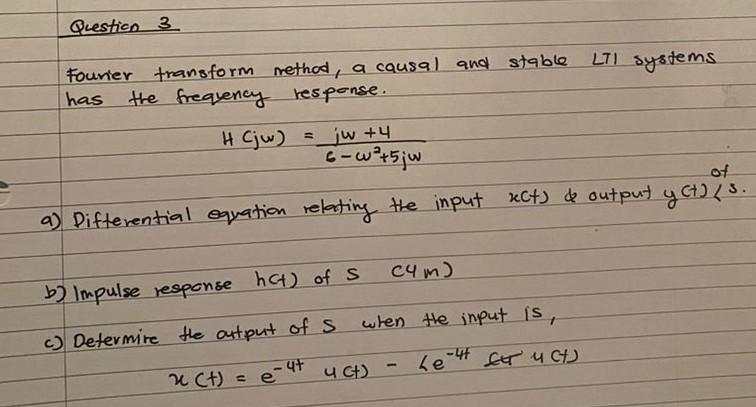 Question 3
Fourier transform method, a causal and stable LTI systems
has the frequency response.
H (jw) = jw +4
6 - ω²+5jw
of
a) Differential equation relating the input x(t) & output y(t) s.
b) Impulse response h(t) of S (4m)
c) Determine the output of S when the input is,
x(t) = e^-4t u(t) - e^-4t u(t)